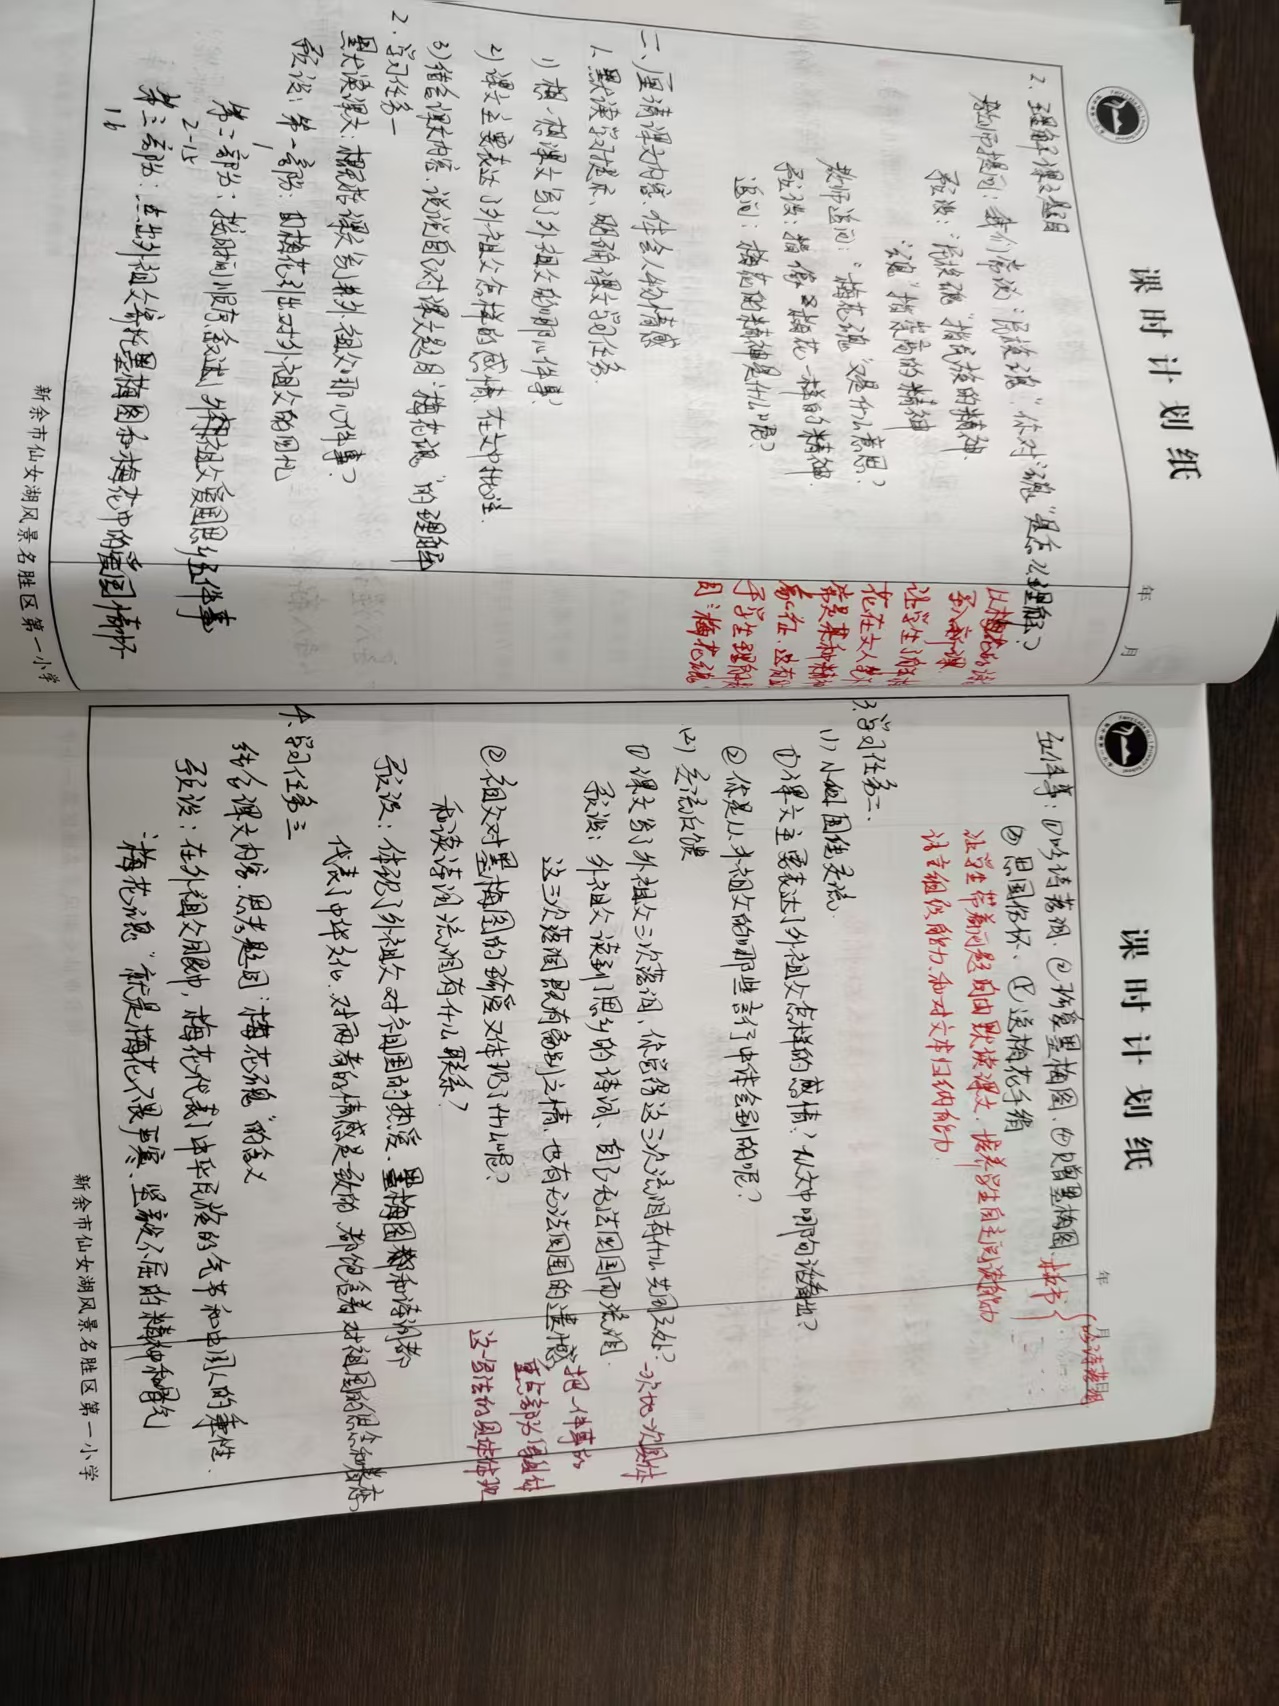 课时计划纸
年 月
2、理解课文题目
教师提问：我们常说“民族魂”你对“魂”是怎么理解？
预设：“民族魂”指民族的精神、
“魂”指崇高的精神
教师追问：“梅花魂”又是什么意思？
预设：指像梅花一样的精神.
追问：梅花的精神是什么呢？
让学生了解
花在文人
常是某种精神
象征.这有
于学生理解
目：梅花魂.
二、厘清课文内容，体会人物情感
1、默读学习提示，明确课文学习任务.
1）想一想课文写了外祖父的哪几件事、
2）课文主要表达了外祖父怎样的感情，在文中批注.
3）结合课文内容，说说自己对课文题目“梅花魂”的理解
2、学习任务一
默读课文.概括课文写了外祖父哪几件事？
预设：第一部分：由梅花引出对外祖父的回忆
1
第二部分：按时间顺序叙述了外祖父爱国思乡五件事
2-15
第三部分：点出外祖父寄托墨梅图和梅花中的爱国情怀
16
新余市仙女湖风景名胜区第一小学
课时计划纸
年 月 日
五件事：①吟诗落泪、②珍爱墨梅图④赠墨梅图.
③思国伤怀、⑤送梅花手绢
板书
吟诗落泪
让学生带着问题自由默读课文.培养学生自主阅读能力
语言组织能力.和对文本归纳能力.
3、学习任务二、
（1）小组围绕交流.
①课文主要表达了外祖父怎样的感情？从文中哪句话看出？
②你是从外祖父的哪些言行中体会到的呢？
（2）交流反馈
①课文写了外祖父三次落泪，你觉得这三次流泪有什么共同之处？
预设：外祖父读到了思乡的诗词、自己无法回国而流泪.
这三次落泪既有离别之情.也有无法回国的遗憾
一次比一次具体
把一件事的
重点部分
这一写法的具体体现
②祖父对墨梅图的珍爱又体现了什么呢？
和读诗词流泪有什么联系？
预设：体现了外祖父对祖国的热爱.墨梅图和诗词都
代表了中华文化.对两者的情感是一致的.都饱含着对祖国的思念和眷恋
4、学习任务三
结合课文内容.思考题目“梅花魂”的含义
预设：在外祖父眼中，梅花代表了中华民族的气节和中国人的秉性.
“梅花魂”就是梅花不畏严寒、坚毅不屈的精神和骨气
新余市仙女湖风景名胜区第一小学